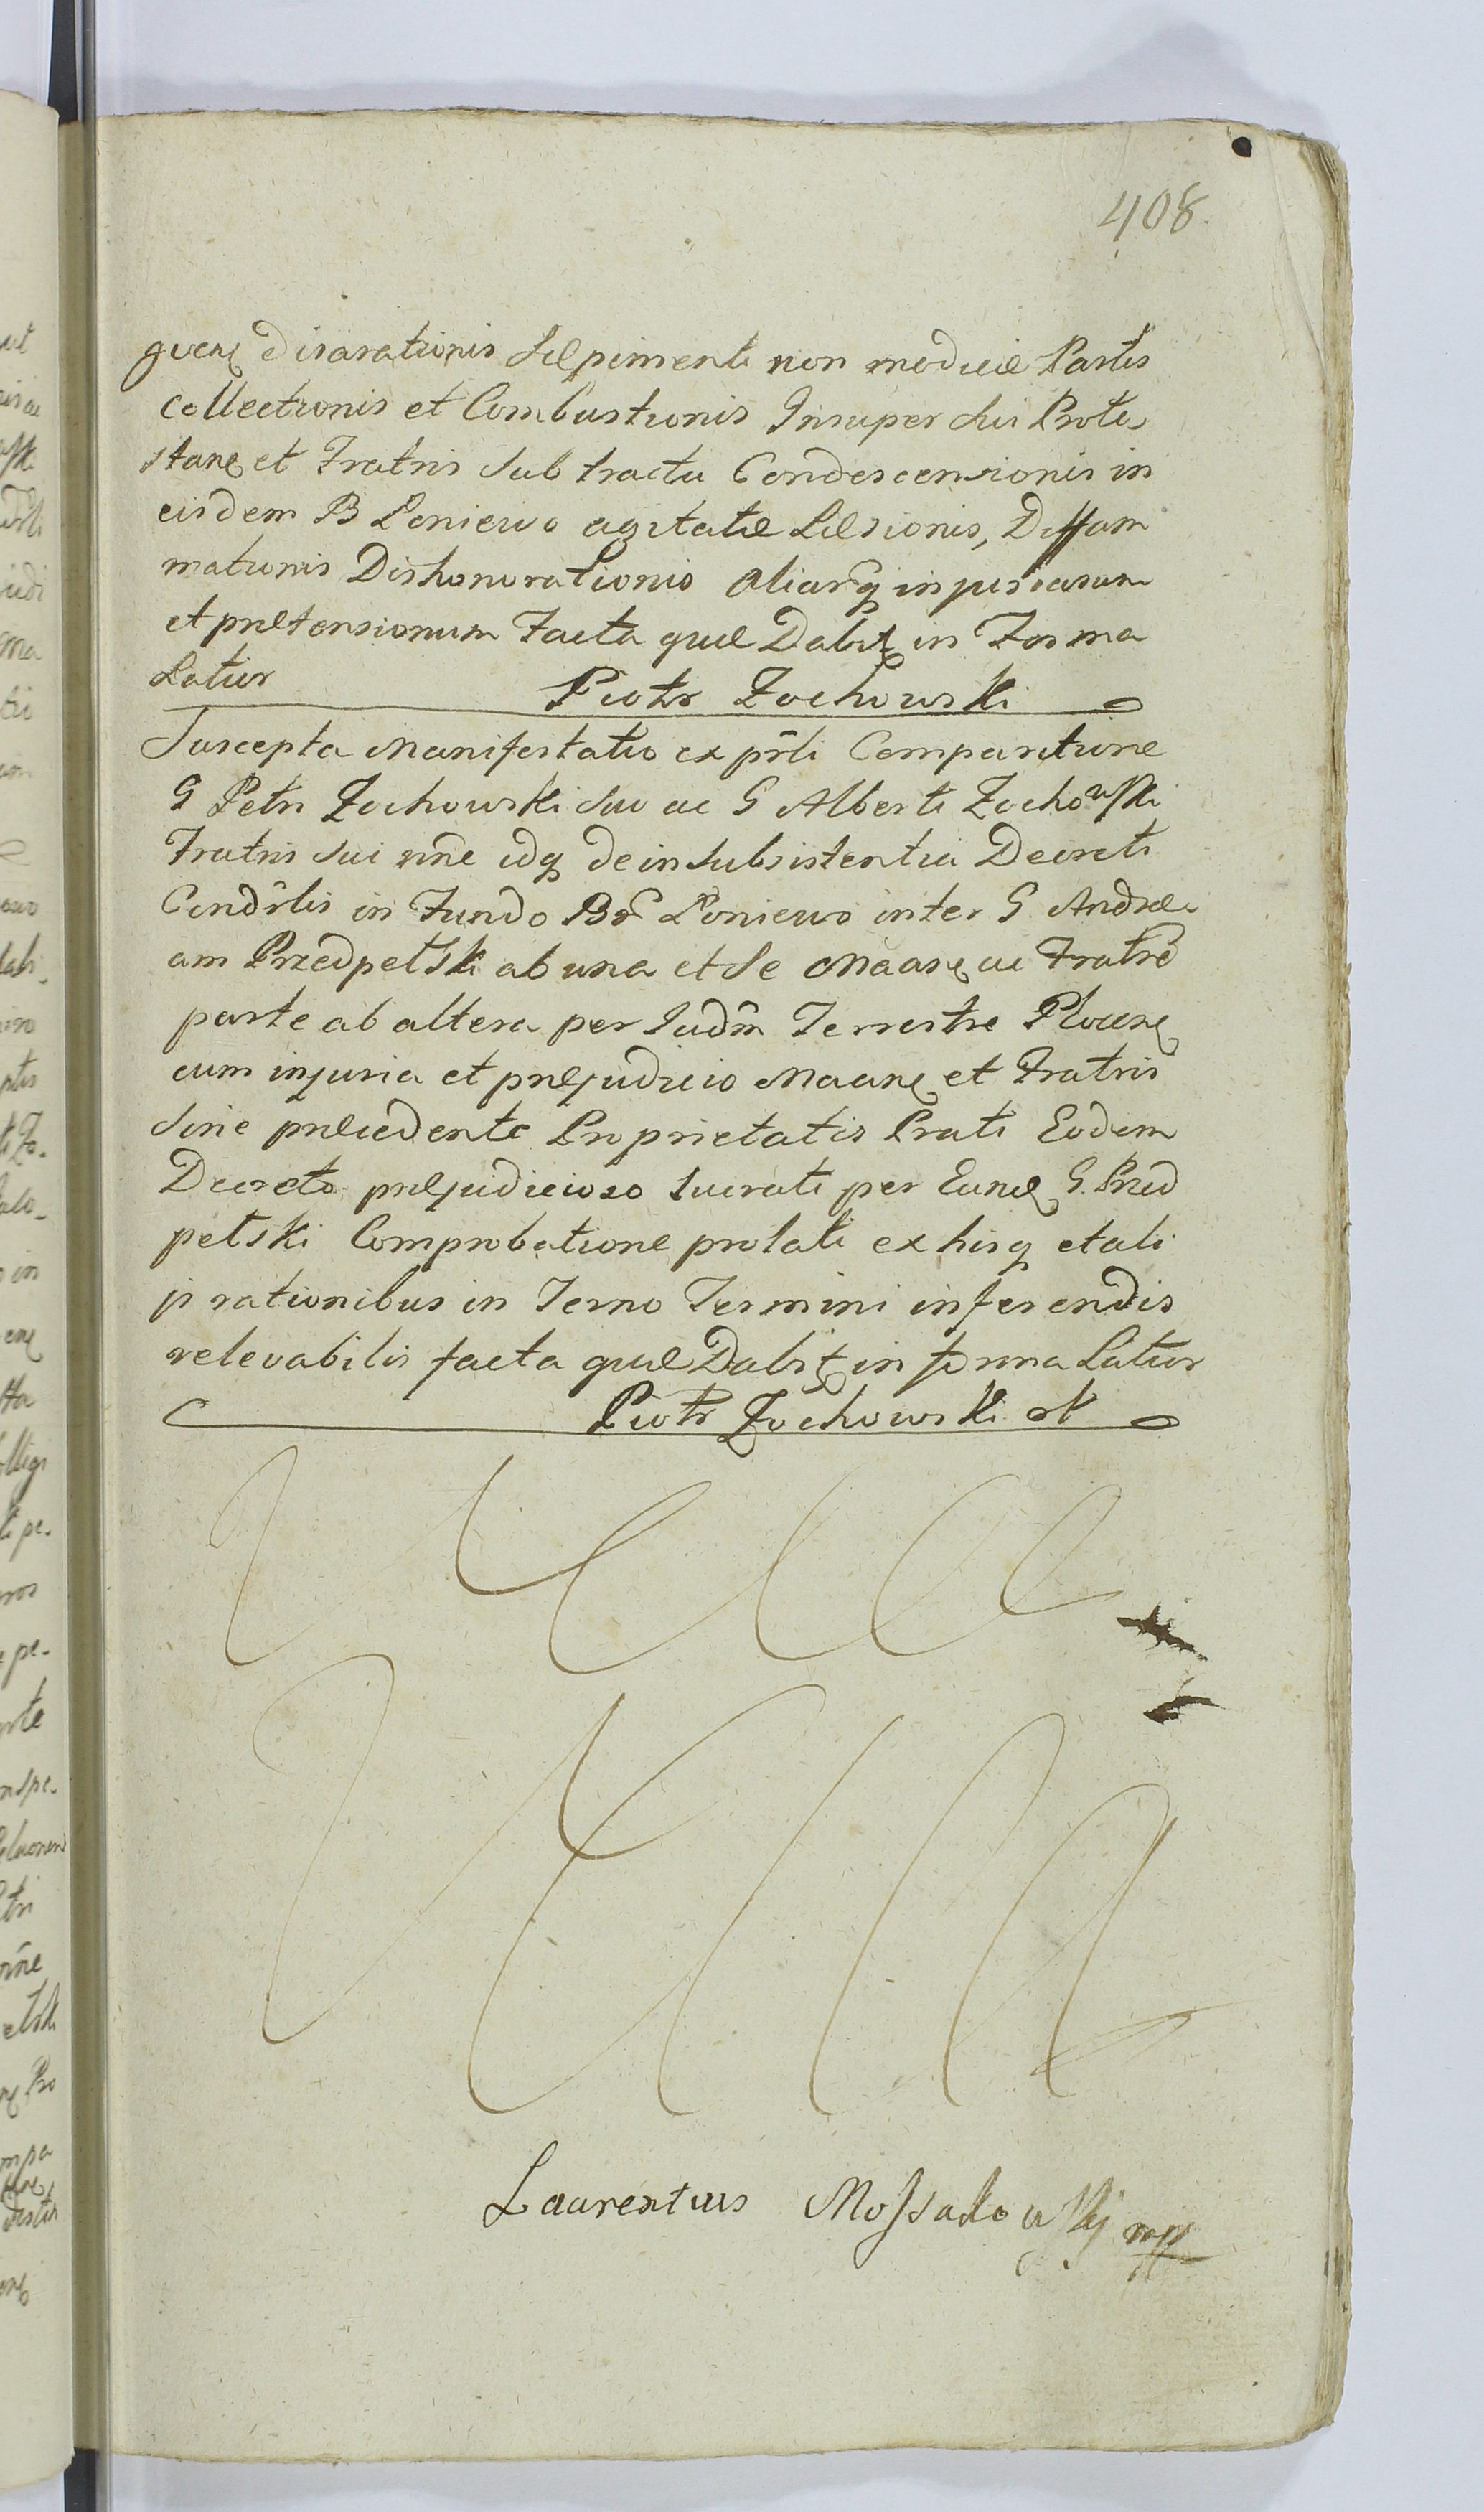 408.
disarationis Sepimenti non modicæ Partis
Collectionis et Combustionis Insuper sui Prote
stanę et Fratris sub tractu Condescensionis in
eisdem B Poniewo agitatæ Læsionis, Diffam
mationis Dishonorationis Aliarq injuriarum
et prætensionum Facta quæ Dabit in Forma
Latior
Piotr Zochowski
Suscepta Manifestatio ex prli Comparitione
G Petri Zochowski suo ac G Alberti Zochowski
Fratris sui nne idq de insubsistentia Decreti
Condrlis in Fundo Br Poniewo inter G Andræ
am Przedpetski ab una et se Maanę ac Fratre
parte ab altera per Judm Terrestre Plocenę
cum injuria et præjudicio Maanę et Fratris
sine præcedente Proprietatis Prati Eodem
Decreto præjudicioso lucrati per Eunę G. Przed
petski Comprobatione prolati ex hisq et ali
js rationibus in Termo Termini inferendis
relevabilis facta quæ Dabit in forma Latior
Piotr Zochowski
Laurentius Mossakowskj mp